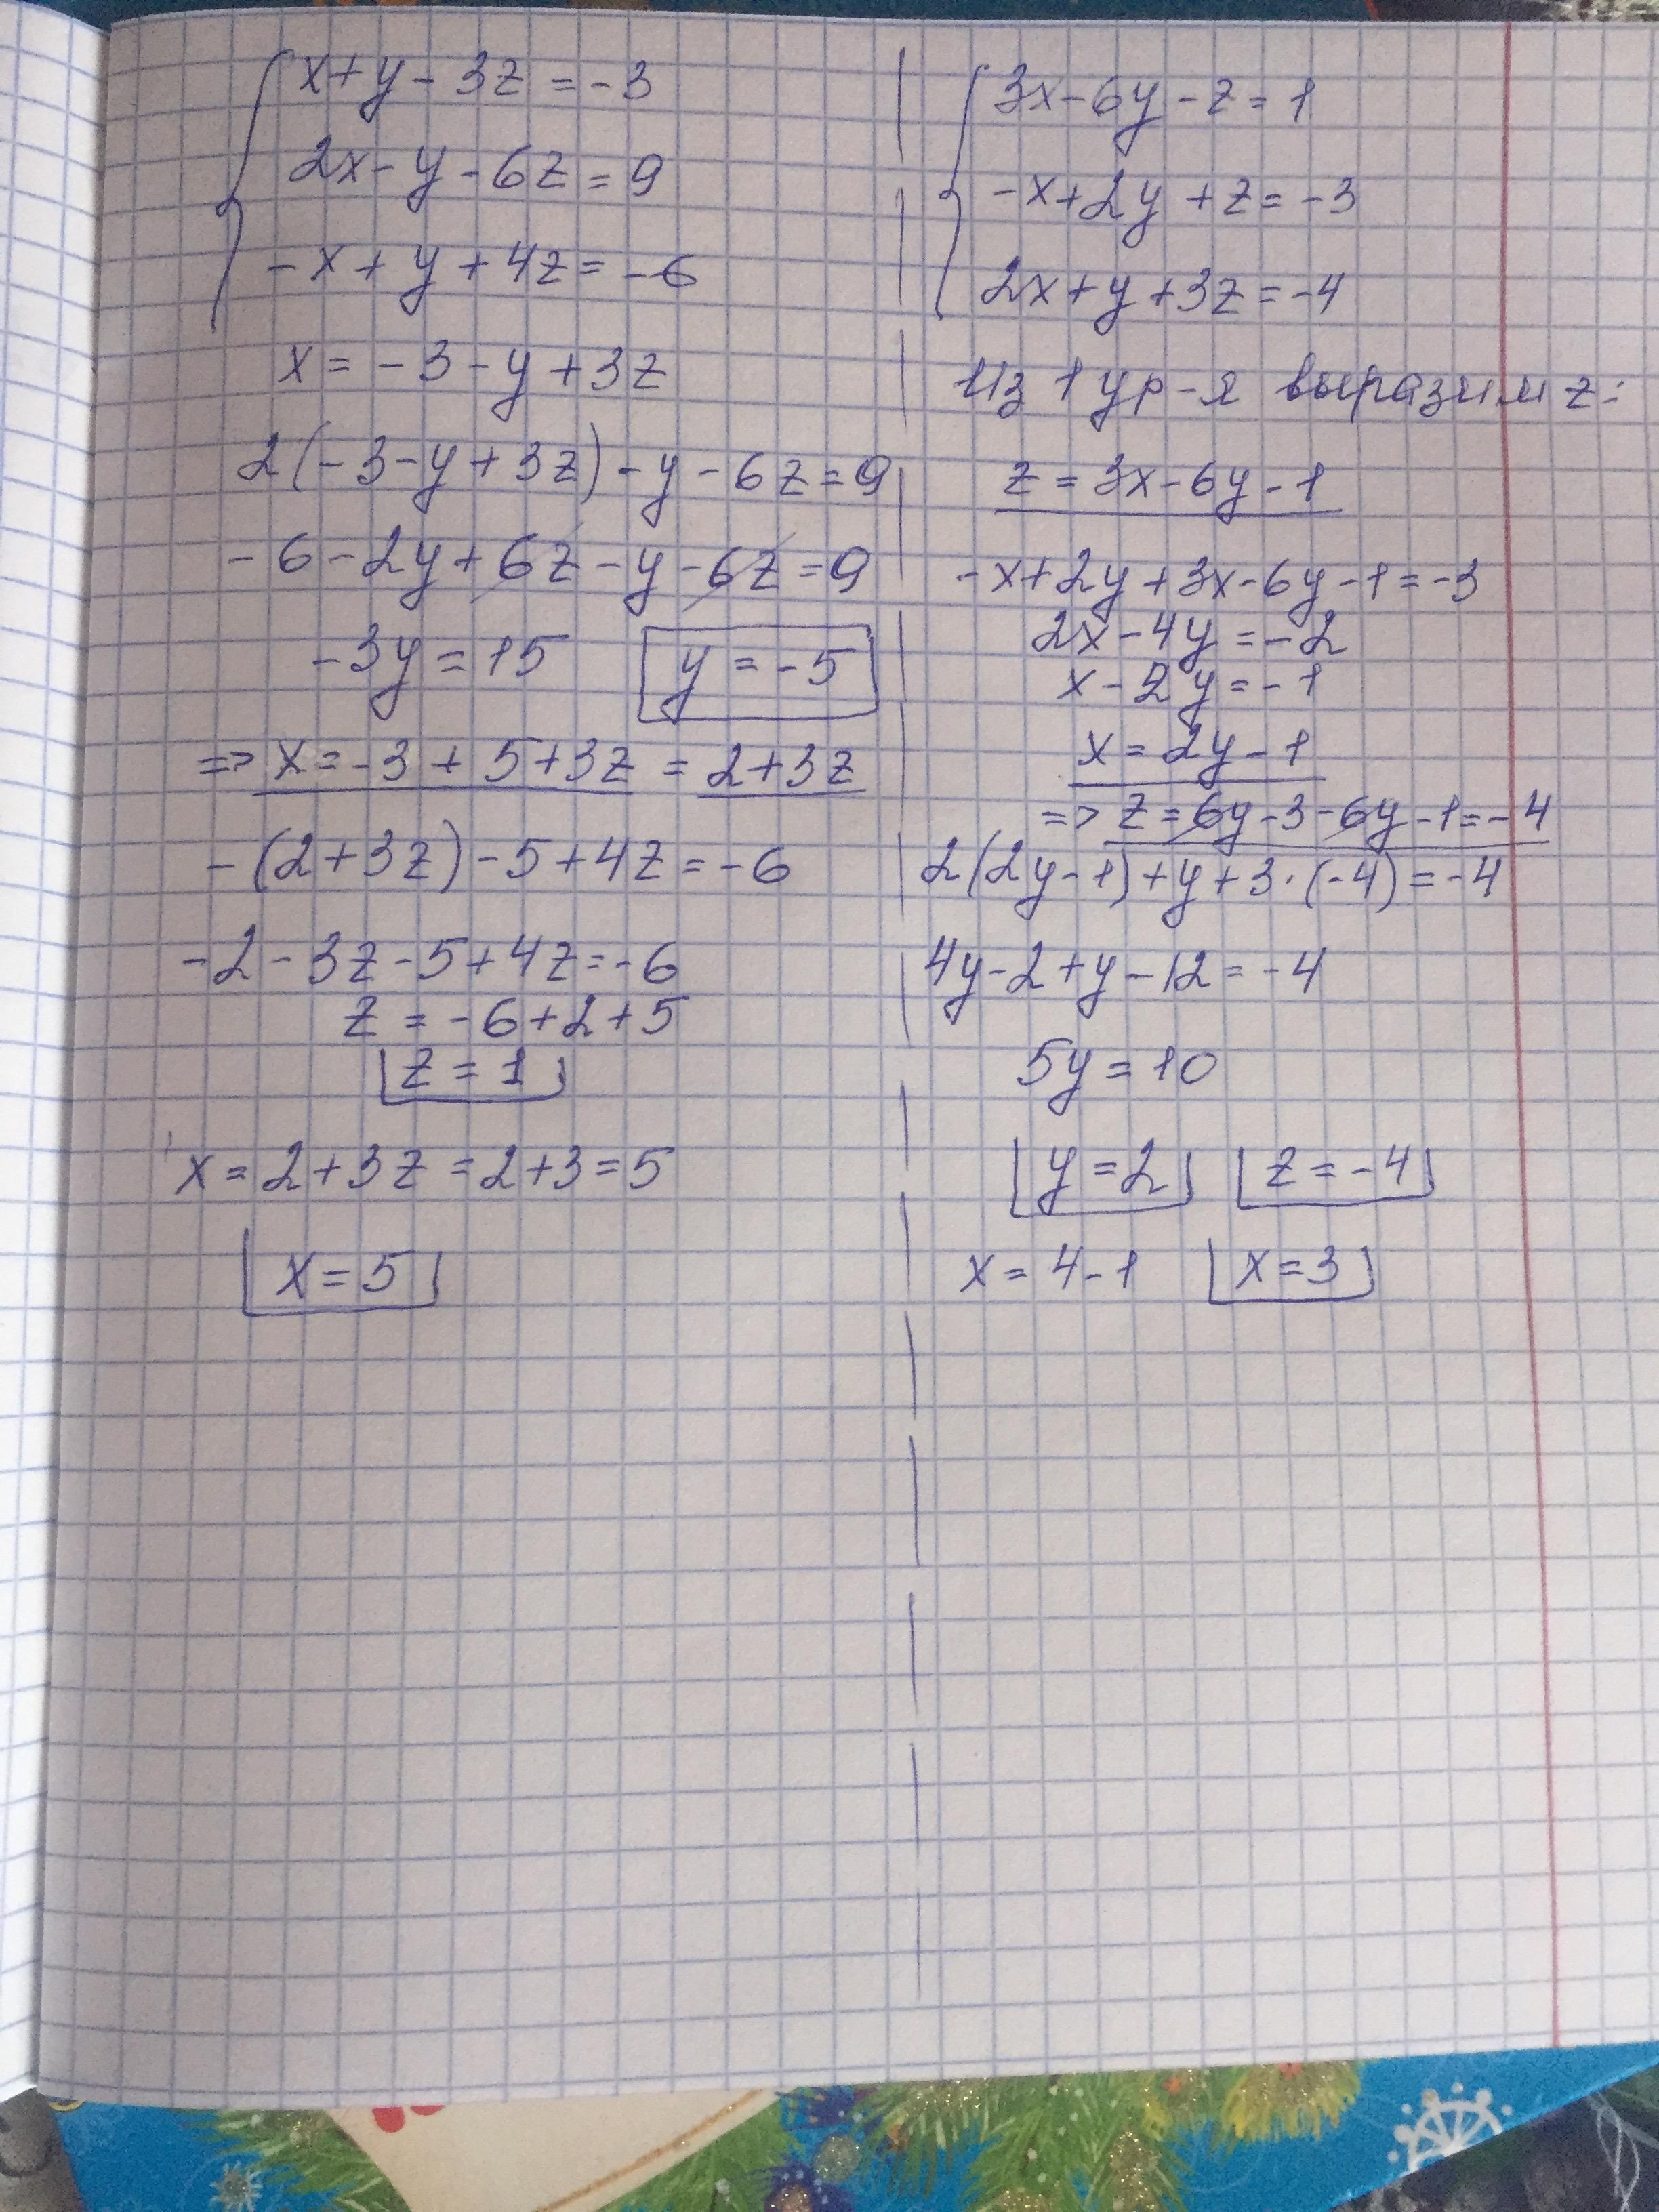 x+y-3z=-3
2x-y-6z=9
-x+y+4z=-6
x=-3-y+3z
2(-3-y+3z)-y-6z=9
-6-2y+6z-y-6z=9
-3y=15 y=-5
=> x=-3+5+3z=2+3z
-(2+3z)-5+4z=-6
-2-3z-5+4z=-6
z=-6+2+5
z=1
x=2+3z=2+3=5
x=5
3x-6y-z=1
-x+2y+z=-3
2x+y+3z=-4
Из 1 ур-я выразим z:
z=3x-6y-1
-x+2y+3x-6y-1=-3
2x-4y=-2
x-2y=-1
x=2y-1
=> z=6y-3-6y-1=-4
2(2y-1)+y+3·(-4)=-4
4y-2+y-12=-4
5y=10
y=2 z=-4
x=4-1 x=3